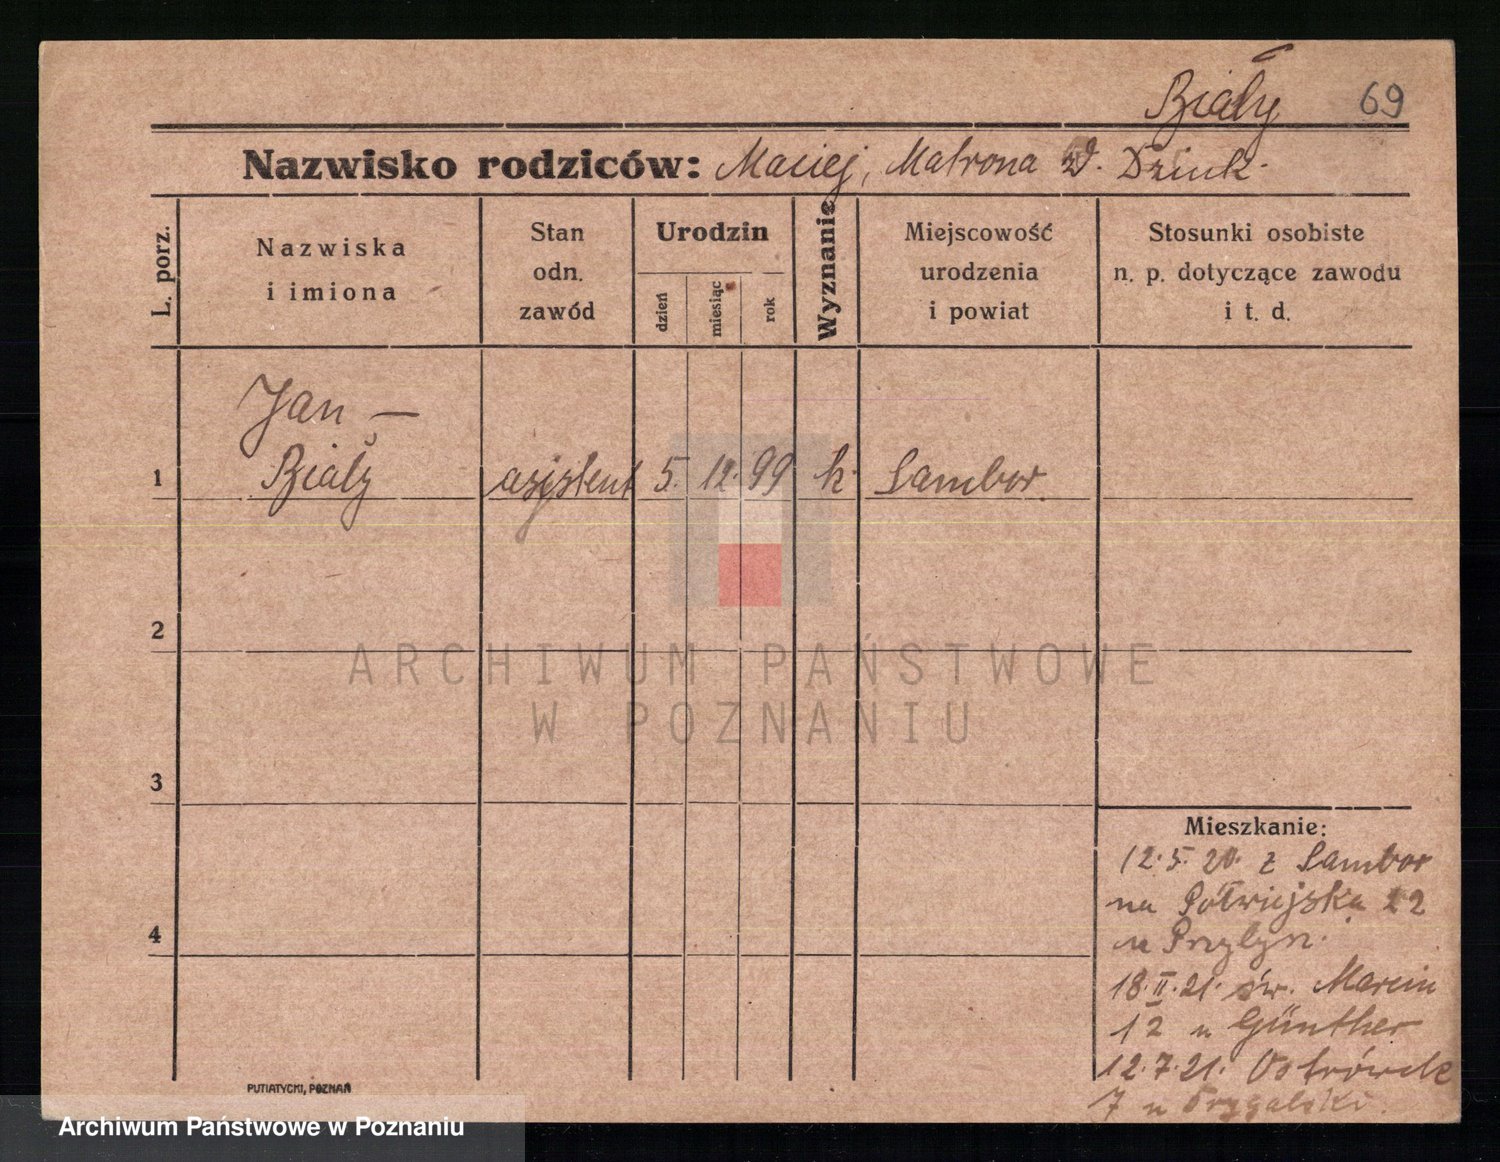 Biały 69
Nazwisko rodziców: Maciej, Matrona zd.
L. porz.
Nazwiska
i imiona
Stan
odn.
zawód
Urodzin
dzień
miesiąc
rok
Wyznanie
Miejscowość
urodzenia
i powiat
Stosunki osobiste
n. p. dotyczące zawodu
i t. d.
Jan —
1 Biały asystent 5. 12. 99 k. Sambor.
2
ARCHIWUM PAŃSTWOWE
W POZNANIU
3
4
Mieszkanie:
12.5.20. z Sambor
na Półwiejska 22
u
18.II.21. św. Marcin
12 u Günther
12.7.21. Ostrówek
7 u
PUTIATYCKI, POZNAŃ
Archiwum Państwowe w Poznaniu